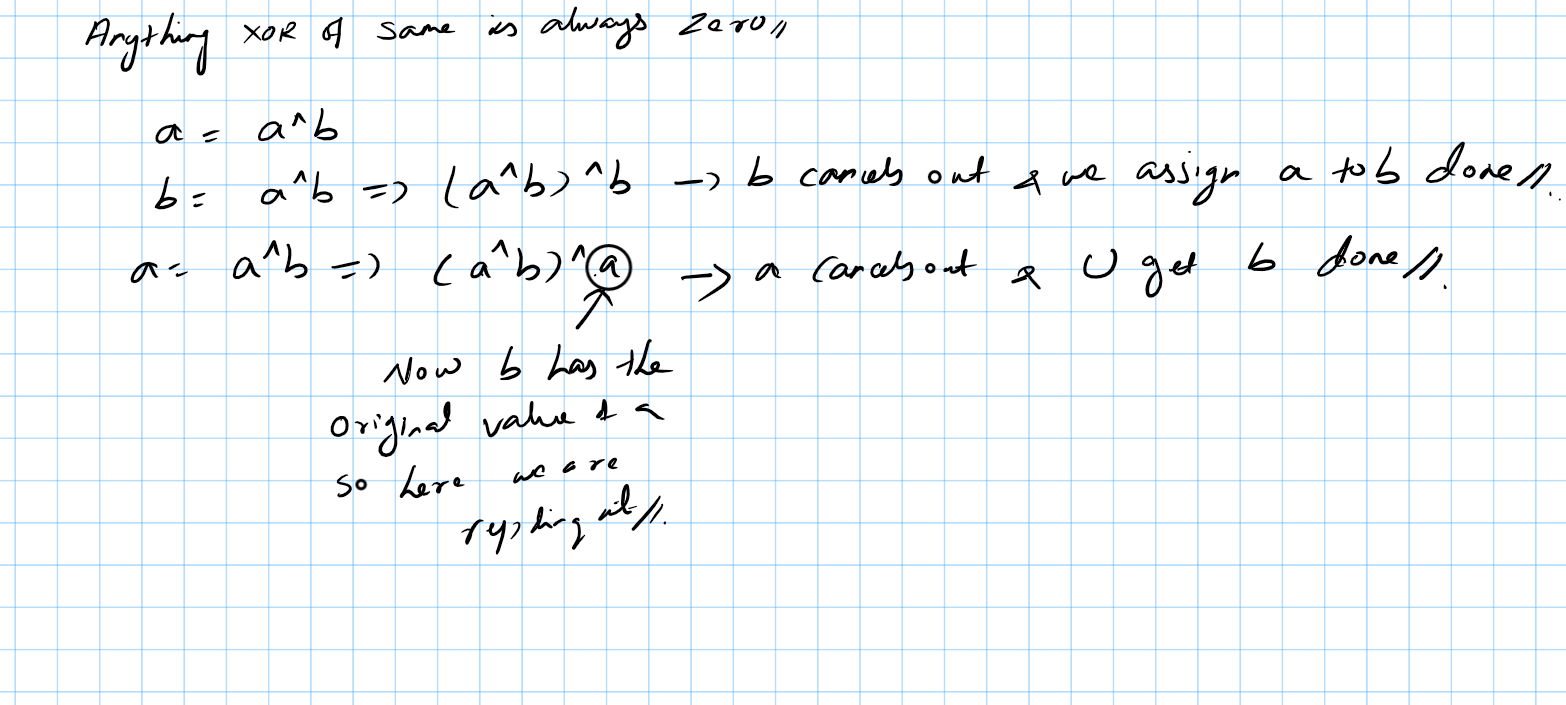 Anything XOR of same is always zero //
a = a^b
b = a^b => (a^b)^b -> b cancels out & we assign a to b done //.
a = a^b => (a^b)^a -> a cancels out & U get b done //.
Now b has the
original value of a
so here we are
it //.